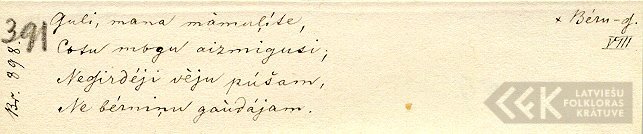 391
Br. 898.
Guli, mana māmuļite,
Cotu mogu aizmigusi;
Nedzirdēji vēju pūšam,
Ne bērniņu gaudājam.
+ Bēru-dz.
VIII
LATVIEŠU
FOLKLORAS
KRĀTUVE